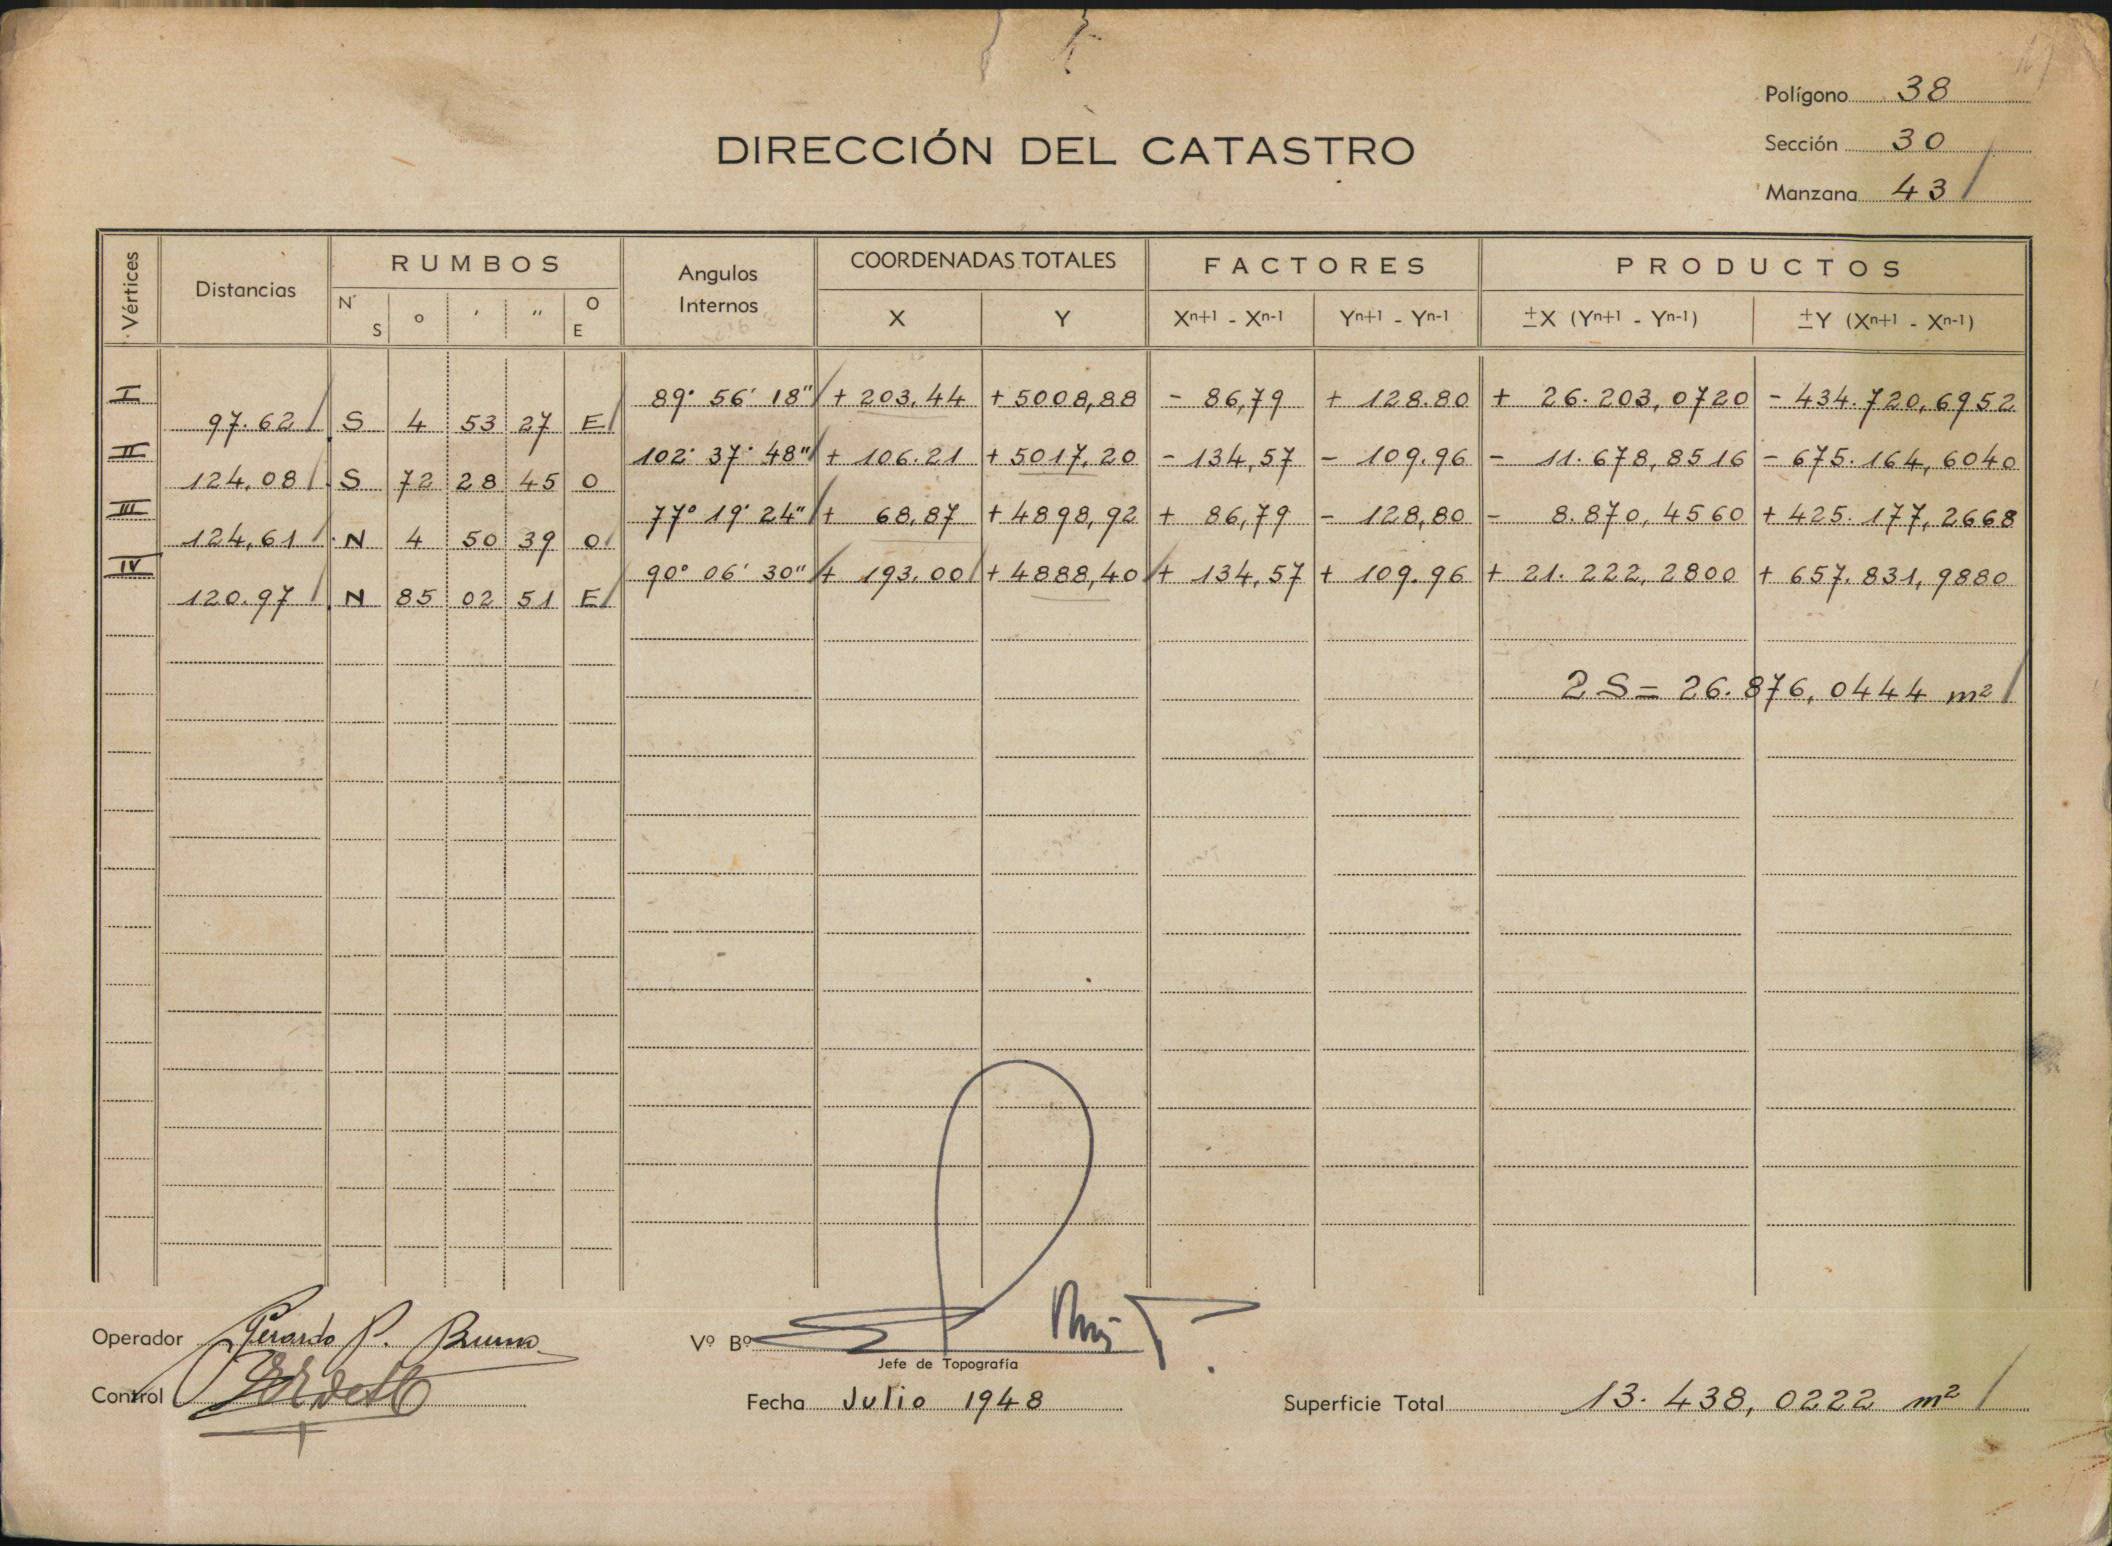 Polígono 38
DIRECCIÓN DEL CATASTRO
Sección 30
Manzana 43
Vértices Distancias RUMBOS Angulos Internos COORDENADAS TOTALES FACTORES PRODUCTOS
N S o ' " O E X Y Xn+1 - Xn-1 Yn+1 - Yn-1 ±X (Yn+1 - Yn-1) ±Y (Xn+1 - Xn-1)
I 89° 56' 18" + 203.44 + 5008,88 - 86,79 + 128.80 + 26.203,0720 - 434.720,6952
97.62 S 4 53 27 E
II 102° 37' 48" + 106.21 + 5017,20 - 134,57 - 109.96 - 11.678,8516 - 675.164,6040
124,08 S 72 28 45 O
III 77° 19' 24" + 68,87 + 4898,92 + 86,79 - 128,80 - 8.870,4560 + 425.177,2668
124,61 N 4 50 39 O
IV 90° 06' 30" + 193.00 + 4888,40 + 134,57 + 109.96 + 21.222,2800 + 657.831,9880
120.97 N 85 02 51 E
2S = 26.876,0444 m²
Operador Gerardo P. Bruno
Vº Bº
Jefe de Topografía
Control
Fecha Julio 1948
Superficie Total 13.438,0222 m²